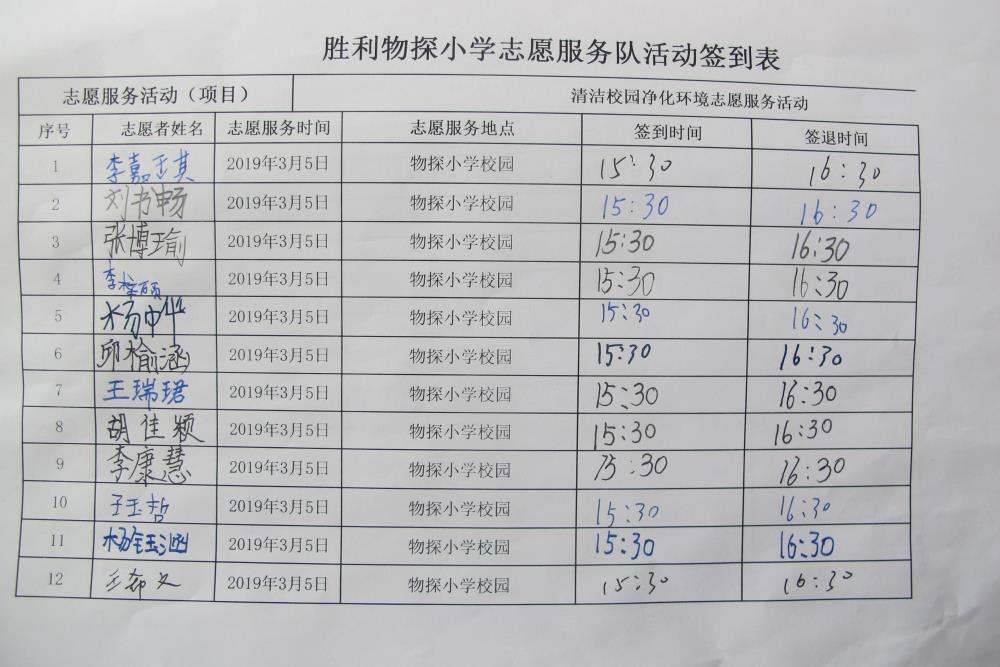 胜利物探小学志愿服务队活动签到表
志愿服务活动（项目） 清洁校园净化环境志愿服务活动
序号 志愿者姓名 志愿服务时间 志愿服务地点 签到时间 签退时间
1 李嘉玉其 2019年3月5日 物探小学校园 15:30 16:30
2 刘书畅 2019年3月5日 物探小学校园 15:30 16:30
3 张博瑜 2019年3月5日 物探小学校园 15:30 16:30
4 李梓硕 2019年3月5日 物探小学校园 15:30 16:30
5 杨中华 2019年3月5日 物探小学校园 15:30 16:30
6 邱榆涵 2019年3月5日 物探小学校园 15:30 16:30
7 王瑞珺 2019年3月5日 物探小学校园 15:30 16:30
8 胡佳颖 2019年3月5日 物探小学校园 15:30 16:30
9 李康慧 2019年3月5日 物探小学校园 15:30 16:30
10 2019年3月5日 物探小学校园 15:30 16:30
11 杨钰涵 2019年3月5日 物探小学校园 15:30 16:30
12 王希文 2019年3月5日 物探小学校园 15:30 16:30